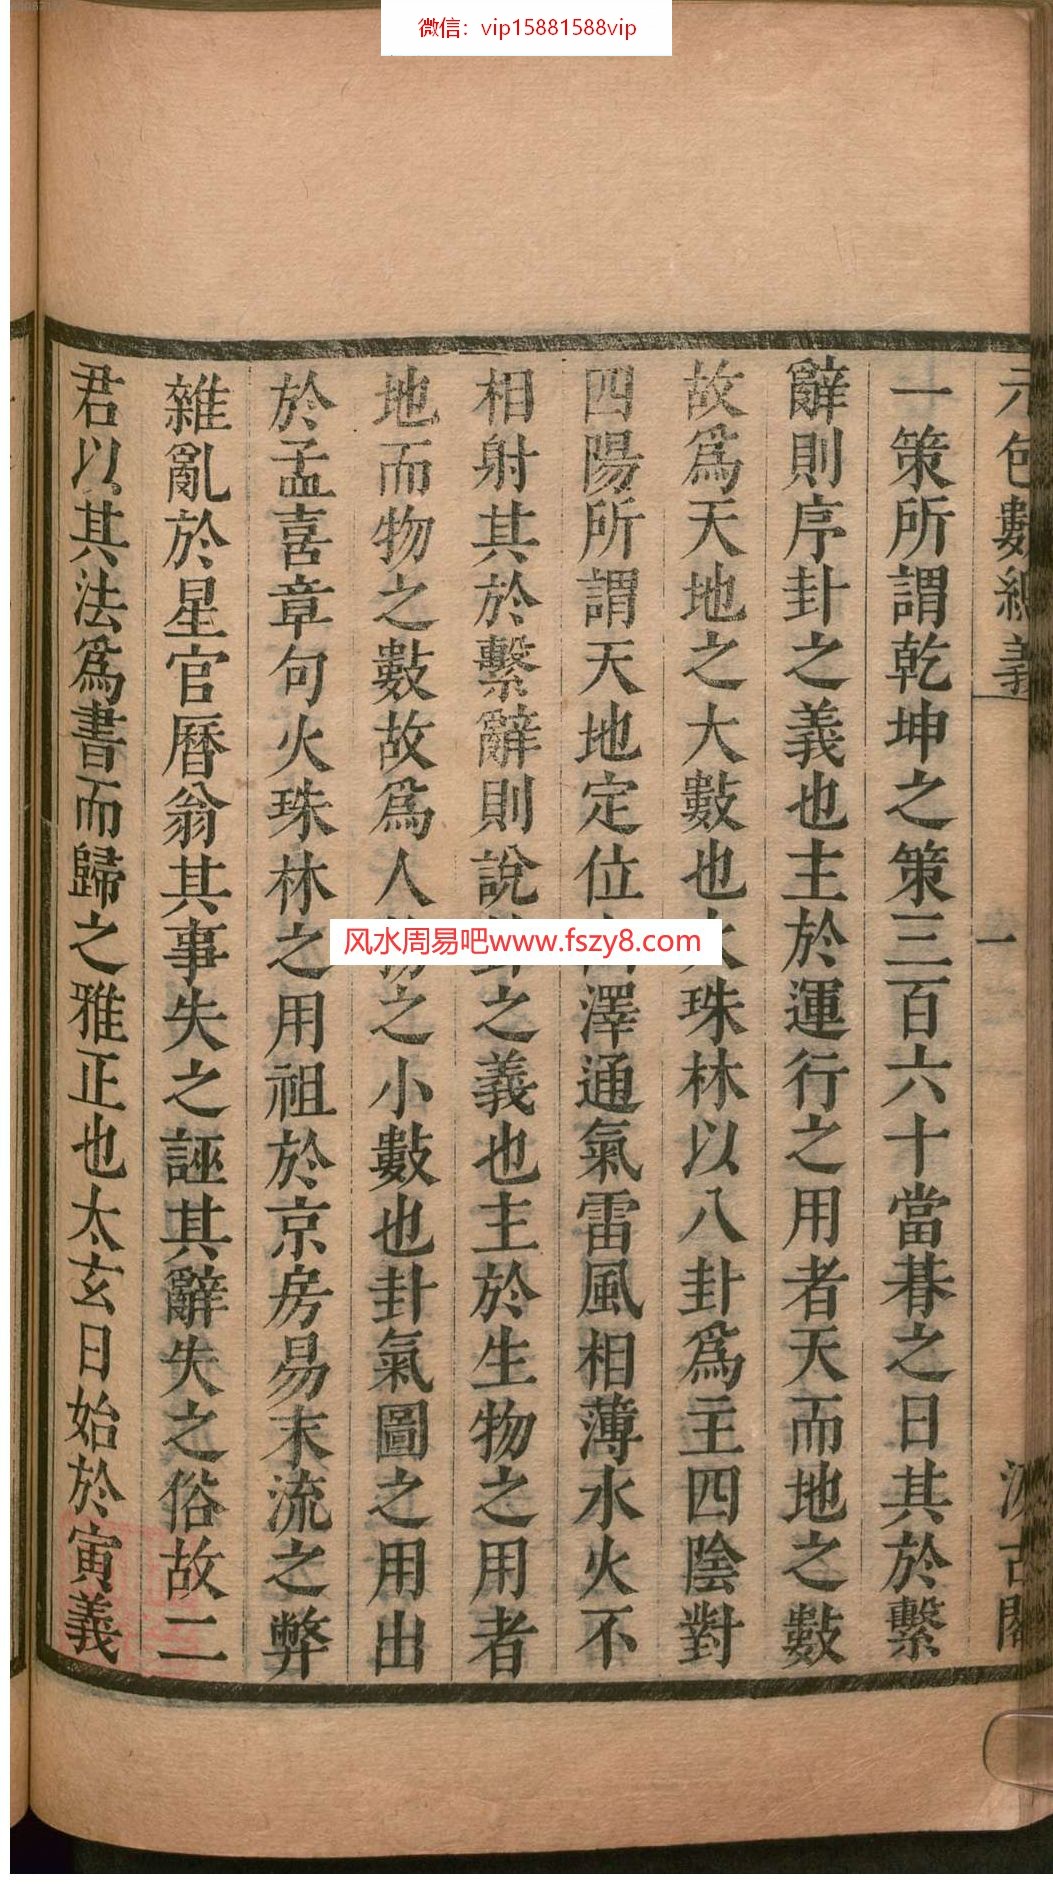 微信：vip15881588vip
元包數總義
一
汲古閣
一策所謂乾坤之策三百六十當朞之日其於繫
辭則序卦之義也主於運行之用者天而地之數
故爲天地之大數也火珠林以八卦爲主四陰對
四陽所謂天地定位山澤通氣雷風相薄水火不
相射其於繫辭則說卦之義也主於生物之用者
地而物之數故爲人物之小數也卦氣圖之用出
於孟喜章句火珠林之用祖於京房易末流之弊
雜亂於星官曆翁其事失之誣其辭失之俗故二
君以其法爲書而歸之雅正也太玄日始於寅義
风水周易吧www.fszy8.com